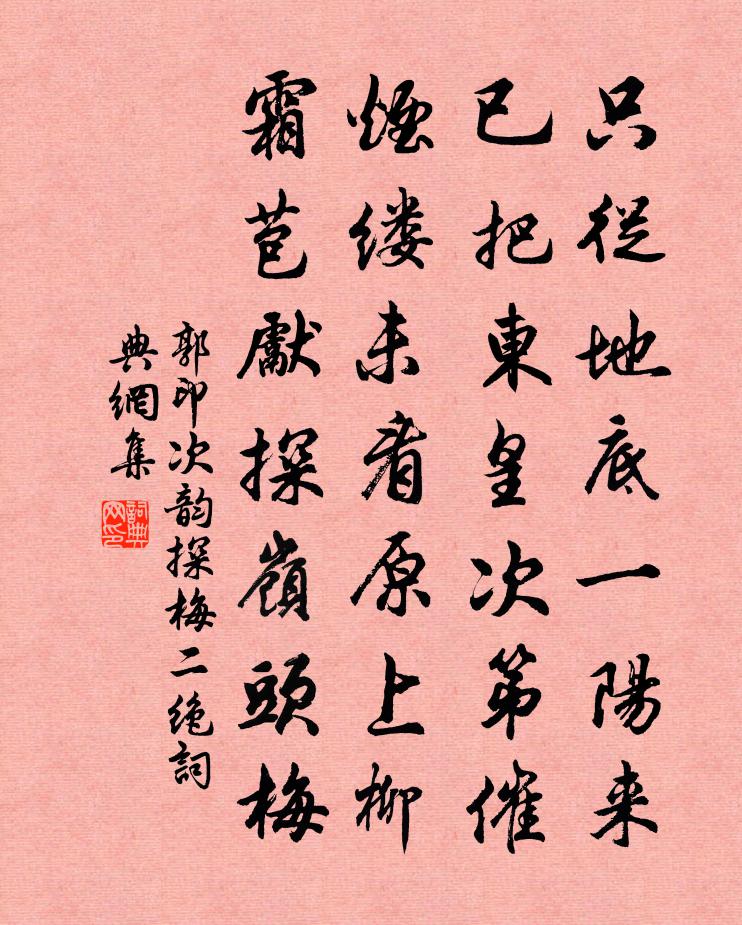 只從地底一陽来
已把東皇次第催
煙缕未看原上柳
霜苞獻探嶺頭梅
郭印次韵探梅二绝詞
典網集
詞典
网印